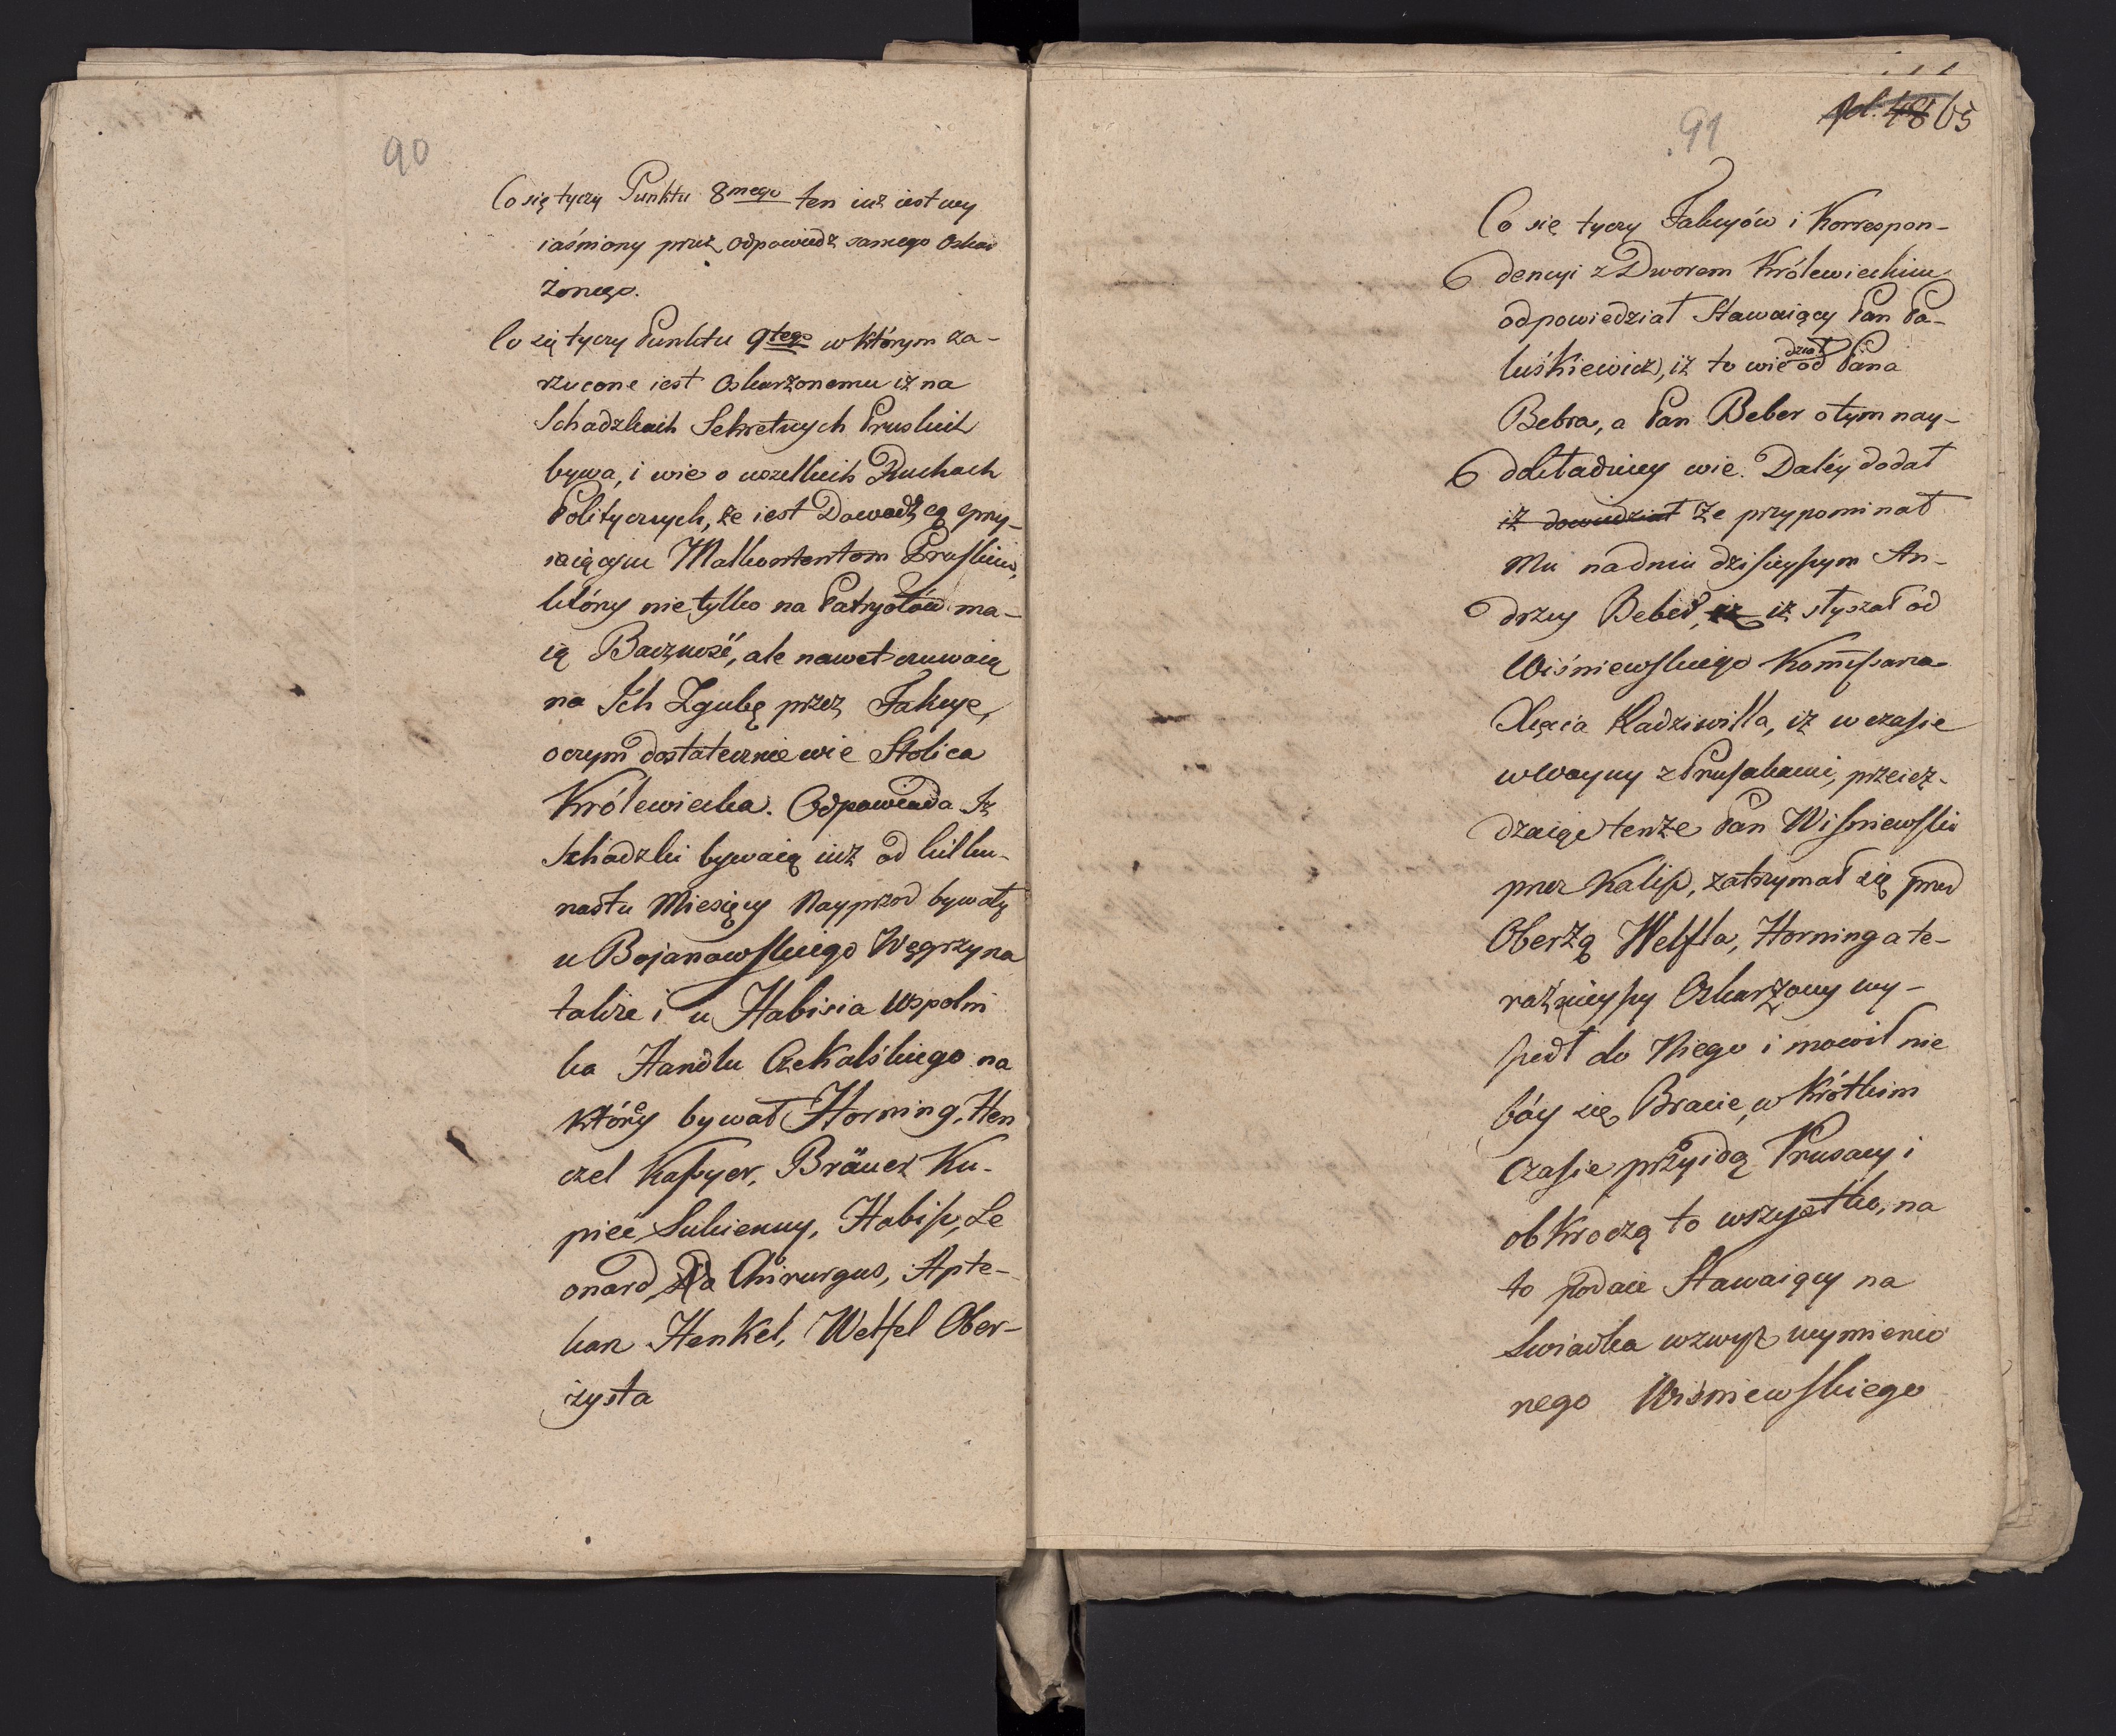 90
Co się tyczy Punktu 8mego ten iuż iest wy
iaśniony przez odpowiedz samego Oskar
żonego.
Co się tyczy Punktu 9tego w którym za-
rzucone iest Oskarżonemu iż na
Schadzkach Sekretnych Pruskich
bywa, i wie o wszelkich Ruchach
Politycznych, że iest Dowodzcą sprzy-
iaiącym Malkontentom Pruskim,
który nie tylko na Patryotów ma-
ią Baczność, ale nawet czuwaią
na Ich Zgubę przez Fakcye,
o czym dostatecznie wie Stolica
Królewiecka. Odpowiada Iż
Schadzki bywaią iuż od kilku-
nastu Miesięcy Nayprzod bywały
u Bojanowskiego Węgrzyna
także i u Habisia Wspolni
ka Handlu Czekalskiego na
który bywał Horning, Hen
czel Kassyer, Bräuer Ku-
piec Sukienny, Habiss, Le
onard Chirurgus, Apte-
karz Henkel, Welfel Ober-
żysta
91
fol. 48 65
Co się tyczy Fakcyów i Korrespon-
dencyi z Dworem Królewieckim
odpowiedział Stawaiący Pan Pa-
luśkiewicz, iż to wie od Pana
dział
Bebra, a Pan Beber o tym nay-
dokładniey wie. Daléy dodał
iż dowiedział że przypominał
Mu na dniu dzisieyszym An-
drzey Beber, iż iż słyszał od
Wiśniewskiego Komissarza
Xięcia Radziwiłła, iż w czasie
w Woyny z Prusakami, przeież-
dzaiąc tenże Pan Wisniewski
przez Kalisz, zatrzymał się przed
Oberżą Welfla, Horning a te-
raźnieyszy Oskarżony wy-
szedł do Niego i mowił nie
bóy się Bracie, w krótkim
Czasie przyidą Prusacy i
obkroczą to wszystko, na
to podaie Stawaiący na
Swiadka wzwyż wymienio
nego Wiśniewskiego